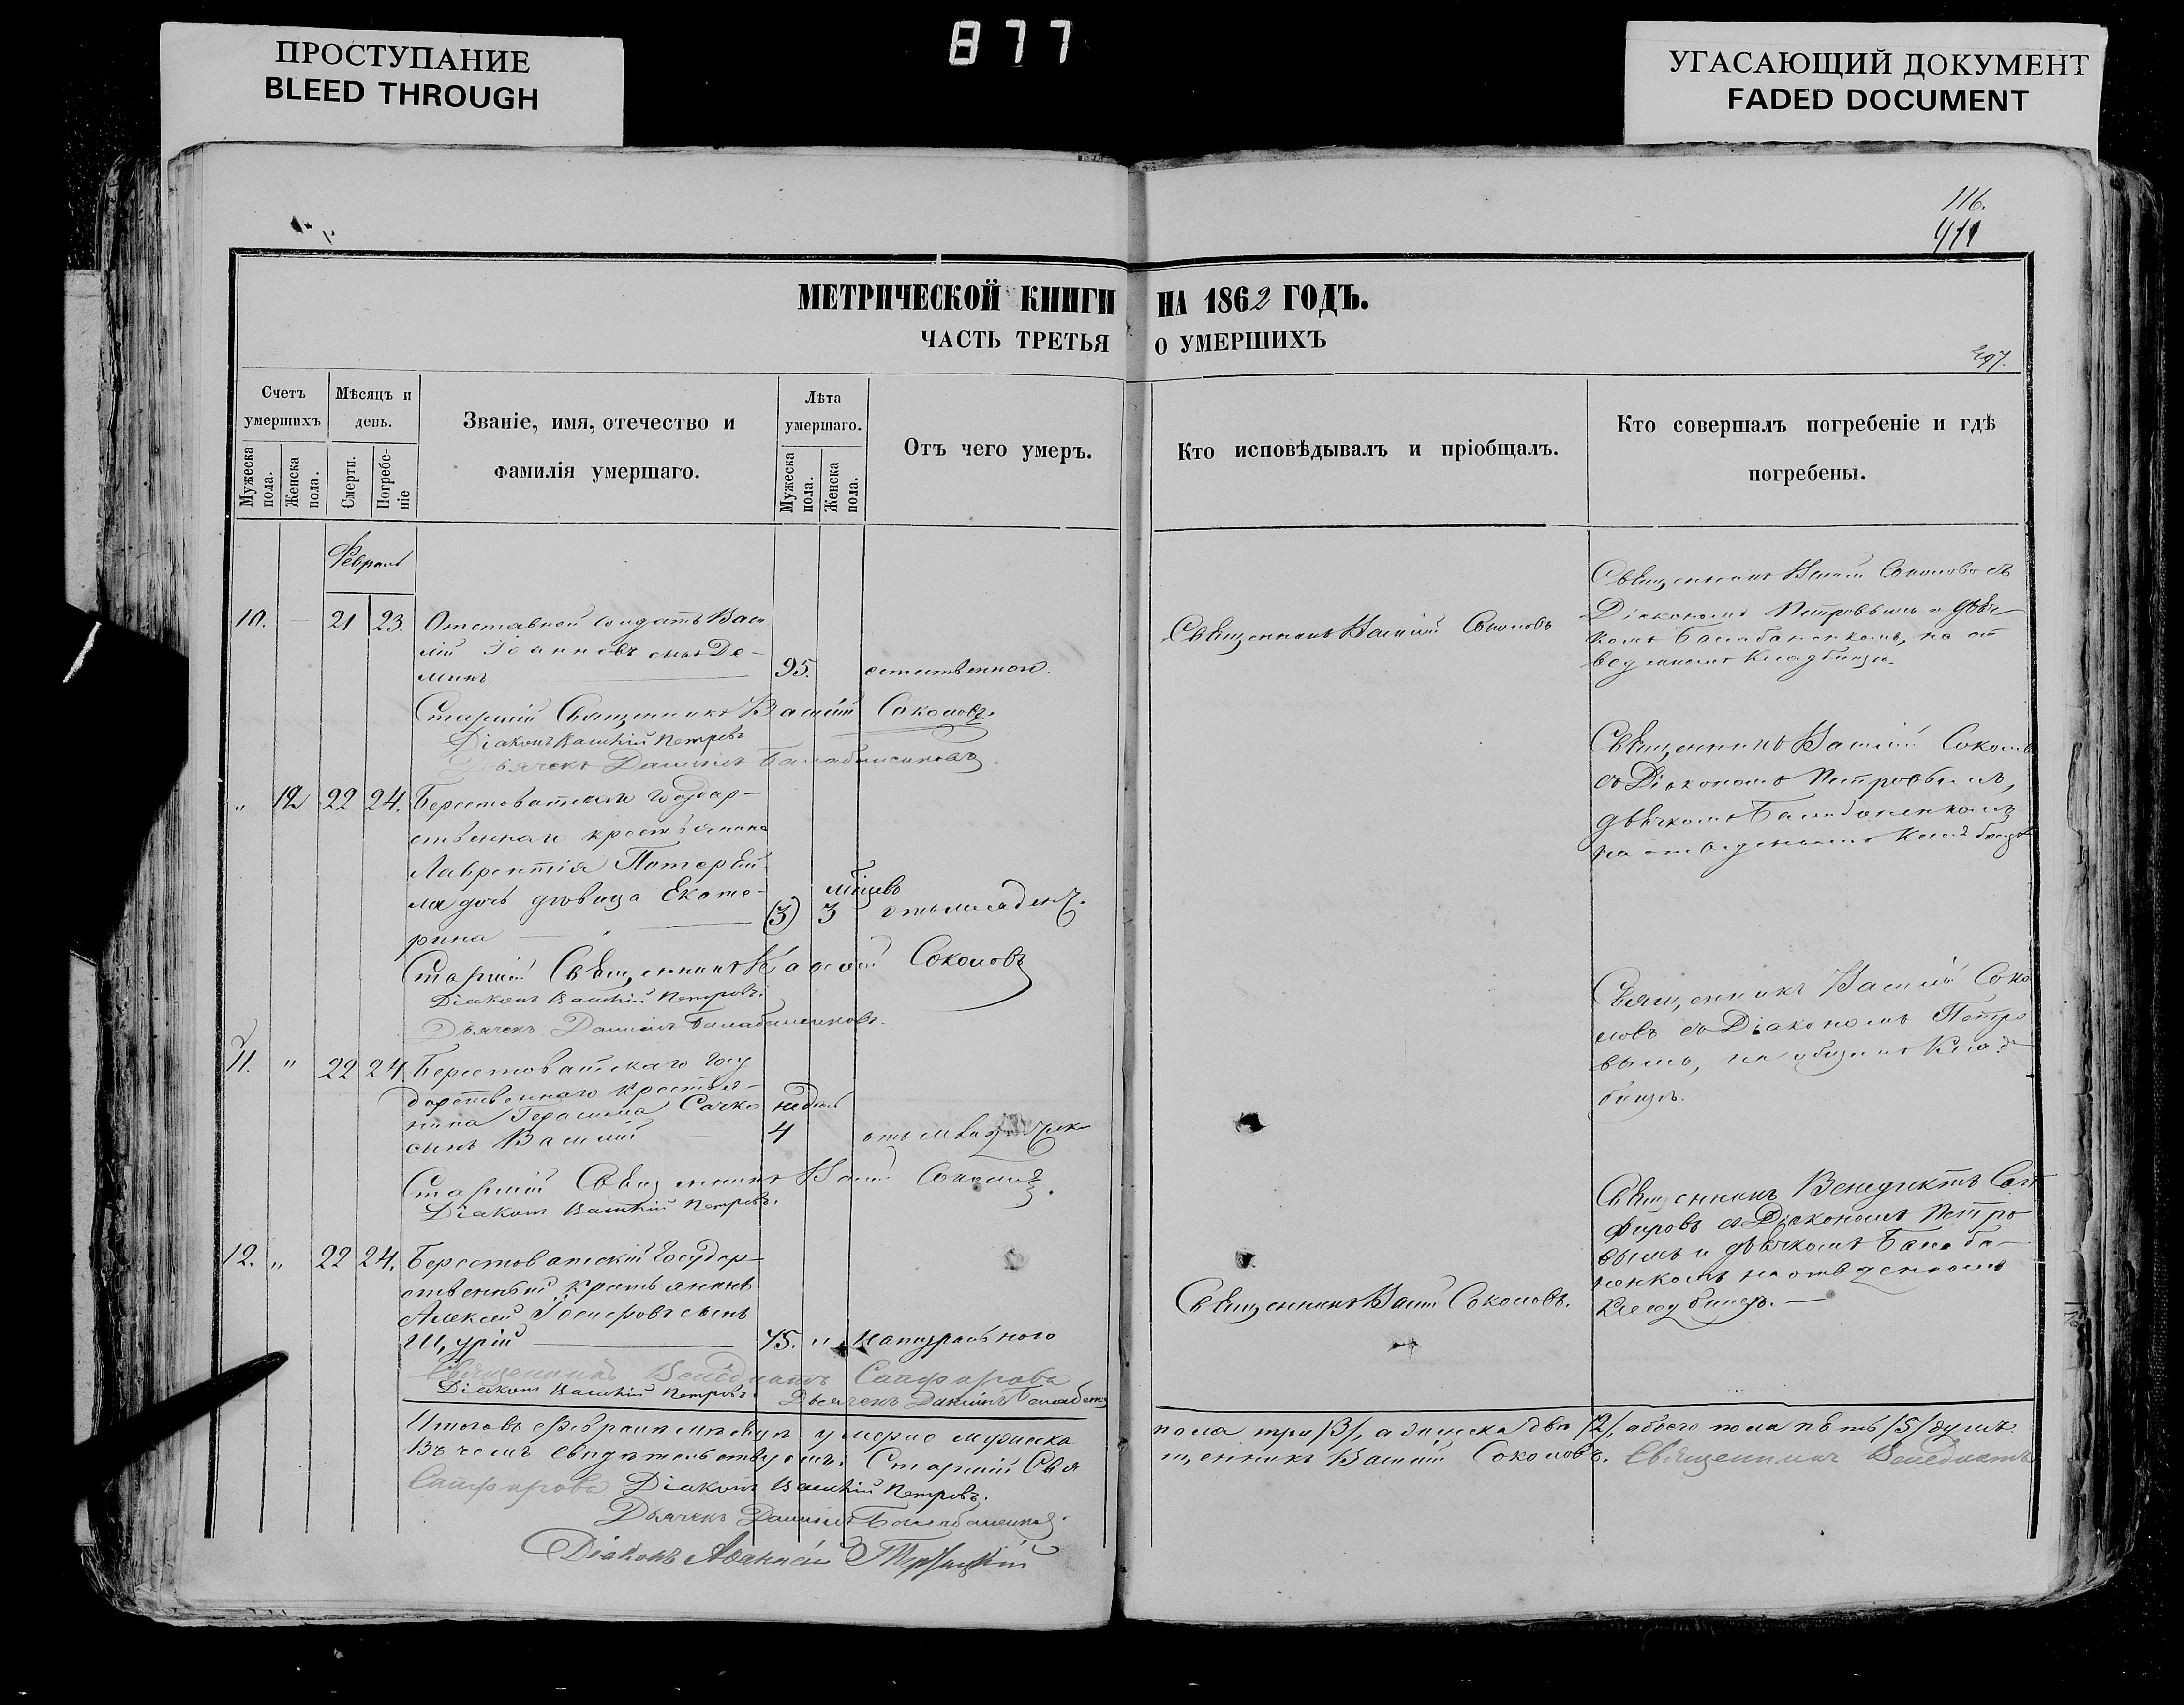 877
ПРОСТУПАНИЕ
BLEED THROUGH
УГАСАЮЩИЙ ДОКУМЕНТ
FADED DOCUMENT
116.
МЕТРИЧЕСКОЙ КНИГИ НА 1862 ГОДЪ.
ЧАСТЬ ТРЕТЬЯ О УМЕРШИХЪ
Счетъ умершихъ
Мужеска пола.
Женска пола.
Мѣсяцъ и день.
Смерти.
Погребеніе
Званіе, имя, отечество и фамилія умершаго.
Лѣта умершаго.
Мужеска пола.
Женска пола.
Отъ чего умеръ.
Кто исповѣдывалъ и пріобщалъ.
Кто совершалъ погребеніе и гдѣ погребены.
Февраль
10. — 21 23. Отставной солдатъ Васи
лій Іоанновъ сынъ Де-
минъ 95. естественною
Священникъ Василій Соколовъ
Священникъ Василій Соколовъ съ
Діакономъ Петровымъ и дьяч-
комъ Балабаненкомъ, на от
веденномъ кладбищѣ.
Старшій Священникъ Василій Соколовъ.
Діаконъ Василій Петровъ
Дьячекъ Даніилъ
" 12 22 24. Берестоватскаго государ-
ственнаго крестьянина
Лаврентія
дочь дѣвица Екате-
рина (3) 3 мѣсяцевъ
Священникъ Василій Соколовъ
съ Діакономъ Петровымъ,
дьячкомъ Балабаненкомъ
на отведенномъ кладбищѣ
Старшій Священникъ Василій Соколовъ
Діаконъ Василій Петровъ.
Дьячекъ Даніилъ
11. " 22 24. Берестоватскаго госу
дарственнаго крестья-
нина Герасима Сачко
сынъ Василій недѣль 4
Священникъ Василій Соко
ловъ съ Діакономъ Петро
вымъ, на общемъ клад-
бищѣ.
Старшій Священникъ Василій Соколовъ.
Діаконъ Василій Петровъ.
12. " 22 24. Берестоватскій Государ-
ственный крестьянинъ
Алексій сынъ
Щурій 45. " натурального
Священникъ Васил Соколовъ.
Священникъ Венедиктъ Сап
фировъ съ Діакономъ Петро
вымъ и дьячкомъ Балаба-
ненкомъ на отведенномъ
кладбищѣ. —
Священникъ Венедиктъ Сапфировъ
Діаконъ Василій Петровъ. Дьячекъ Даніилъ
Итого въ Февралѣ мѣсяцѣ умерло мужеска пола три /3/, а женска два /2/, обоего пола пять /5/ душъ.
Въ чемъ свидѣтельствуемъ: Старшій Священникъ Василій Соколовъ. Священникъ Венедиктъ
Сапфировъ Діаконъ Василій Петровъ.
Дьячекъ Даніилъ
Діаконъ Аѳанасій